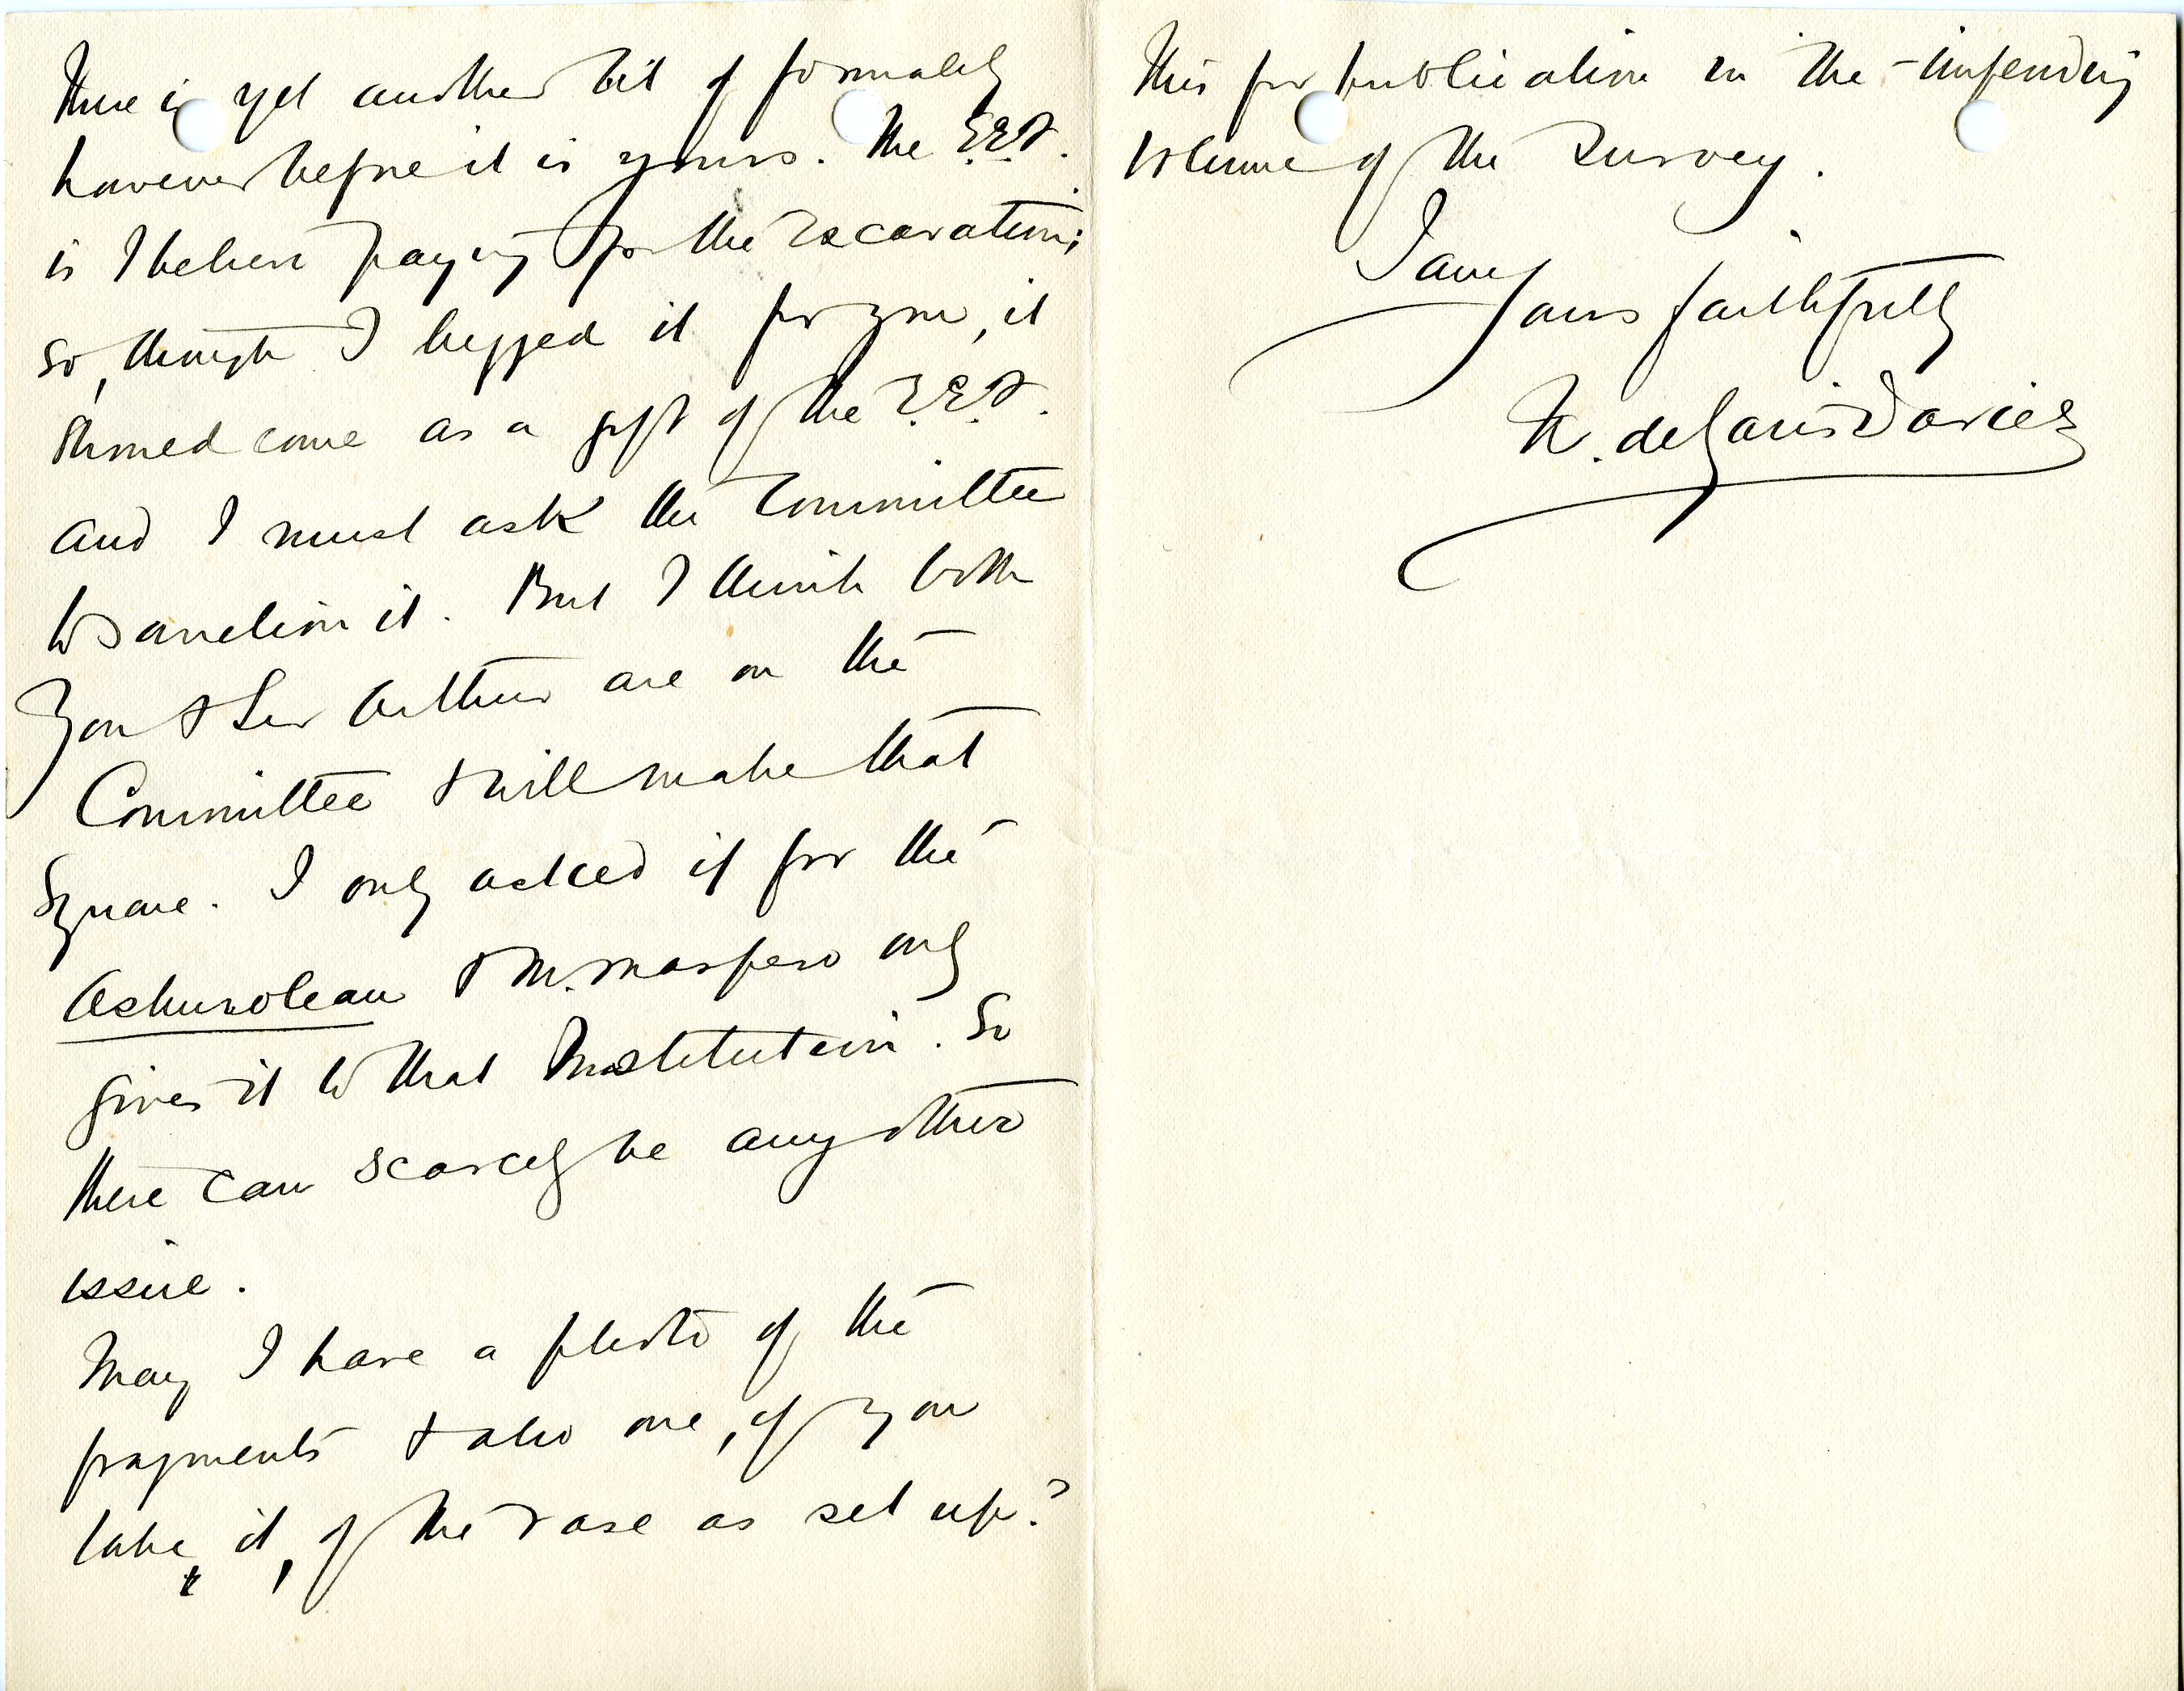 There is yet another bit of formality
however before it is yours. The E.E.F.
is I believe paying for the excavation;
so, though I begged it for you, it
should come as a gift of the E.E.F.
and I must ask the Committee
to sanction it. But I think both
you & Sir Arthur are on the
Committee & will make that
square. I only asked it for the
Ashmolean & M. Maspero only
gives it to that Institution. So
there can scarcely be any other
issue.
May I have a photo of the
fragments & also one, if you
take it, of the vase as set up?
This for publication in the impending
volume of the Survey.
I am
Yours faithfully
N. de Garis Davies